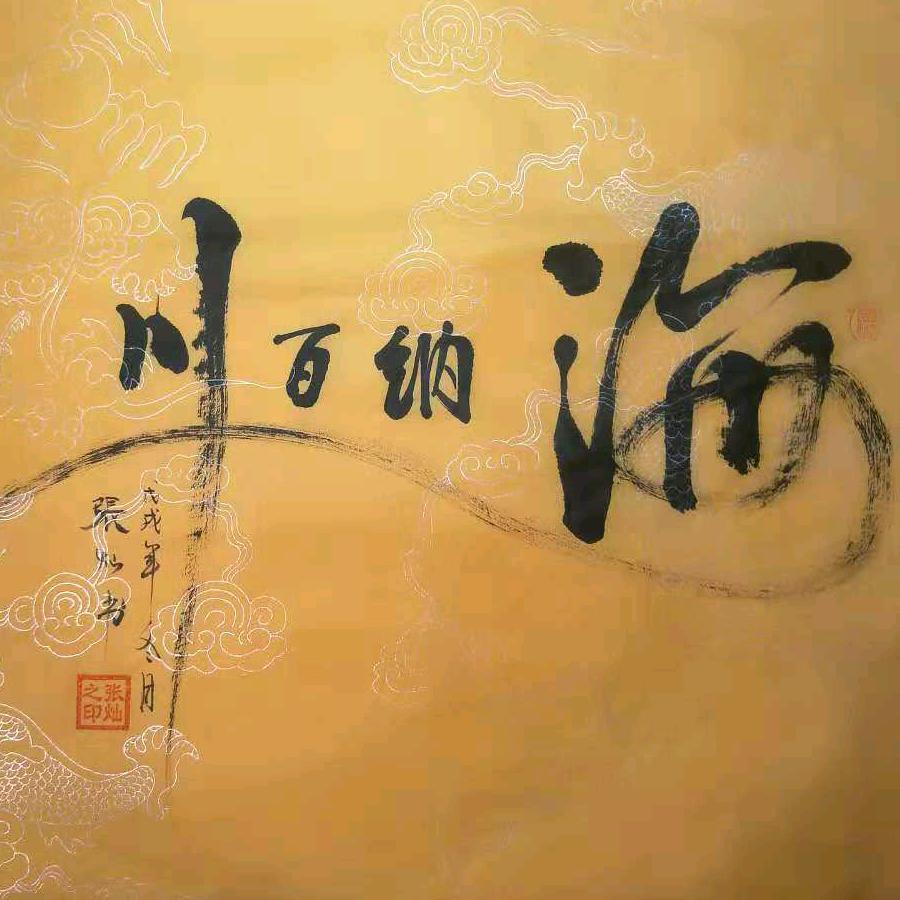 海纳百川
戊戌年冬月
張灿书
张灿之印